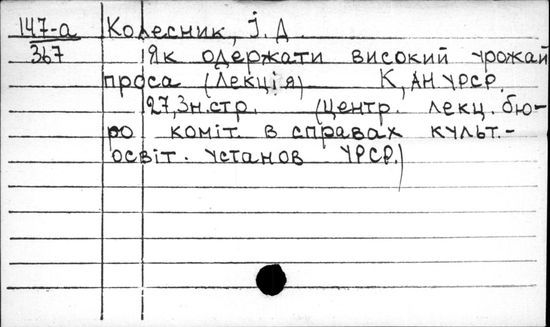 147-а Колесник, І. Д.
367 Як одержати високий урожай
проса (Лекція) К, АН УРСР.
27,3н.стр. (Центр. лекц. бю-
ро коміт. в справах культ.-
освіт. установ УРСР.)